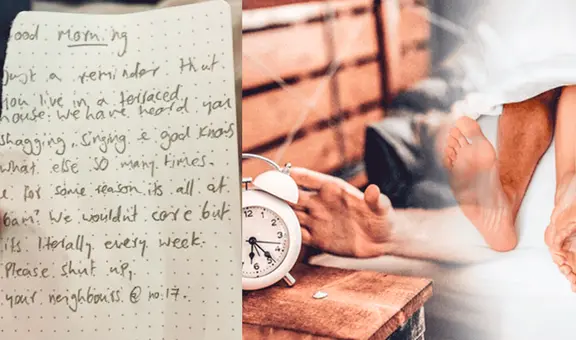 Good morning
Just a reminder that
you live in a terraced
house. We have heard you
shagging, singing & good knows
what else so many times.
& for some reason its all at
6am? We wouldn't care but
its literally every week.
Please shut up,
your neighbours @ no.17.